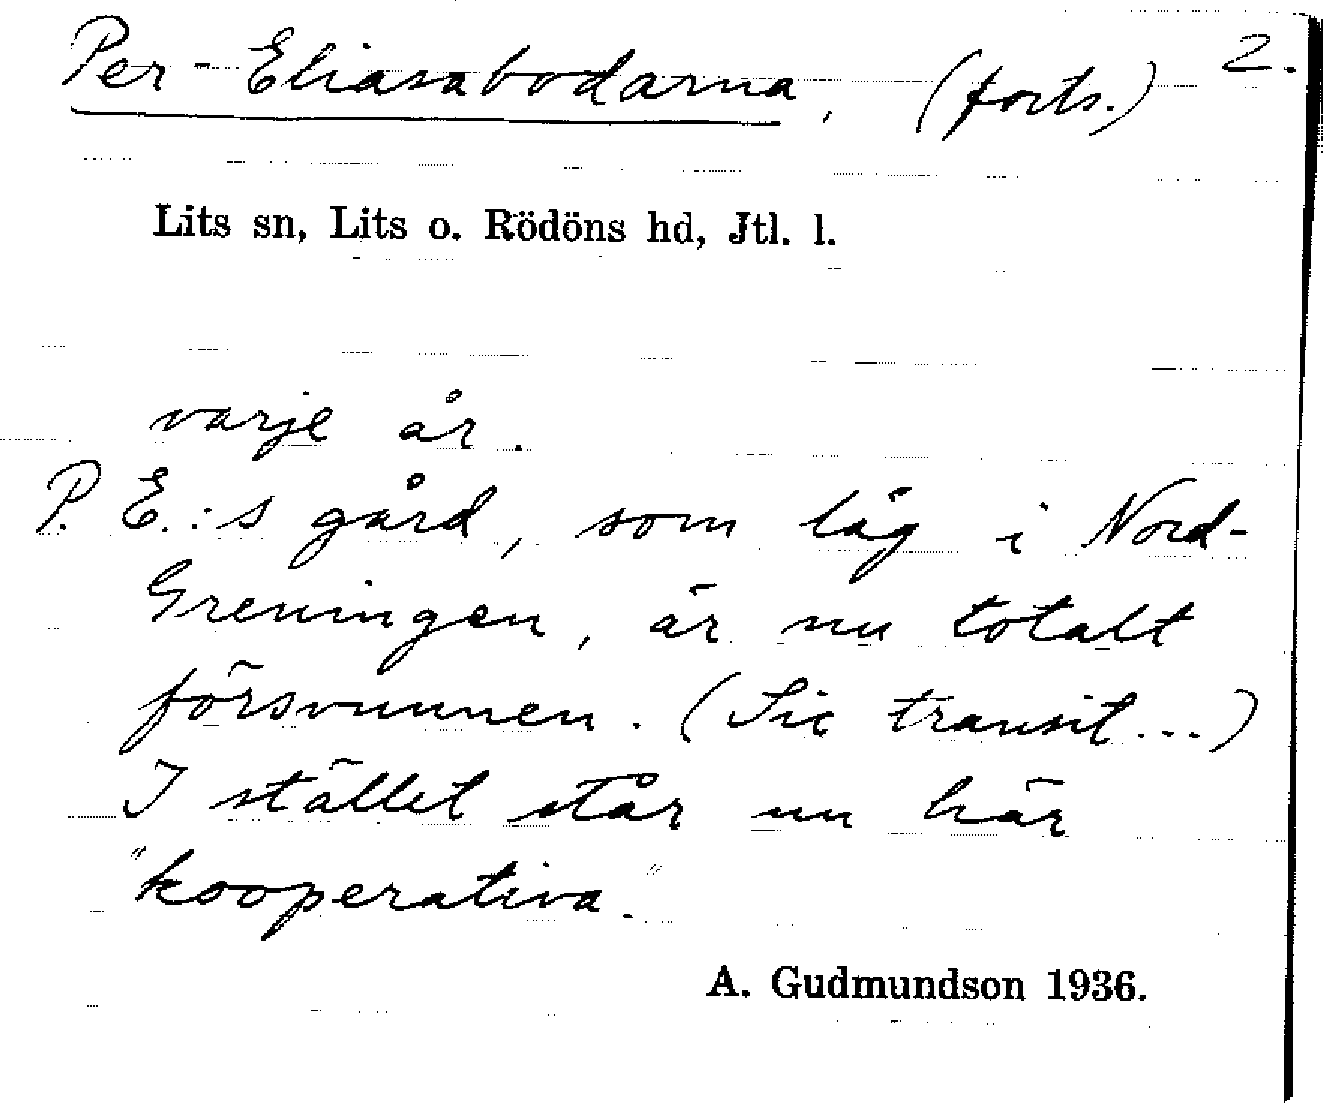 Per-Eliasabodarna, (forts.) 2.
Lits sn, Lits o. Rödöns hd, Jtl. l.
varje år.
P. E.:s gård, som låg i Nord-
Greningen, är nu totalt
försvunnen. (Sic transit...)
I stället står nu här
"kooperativa."
A. Gudmundson 1936.